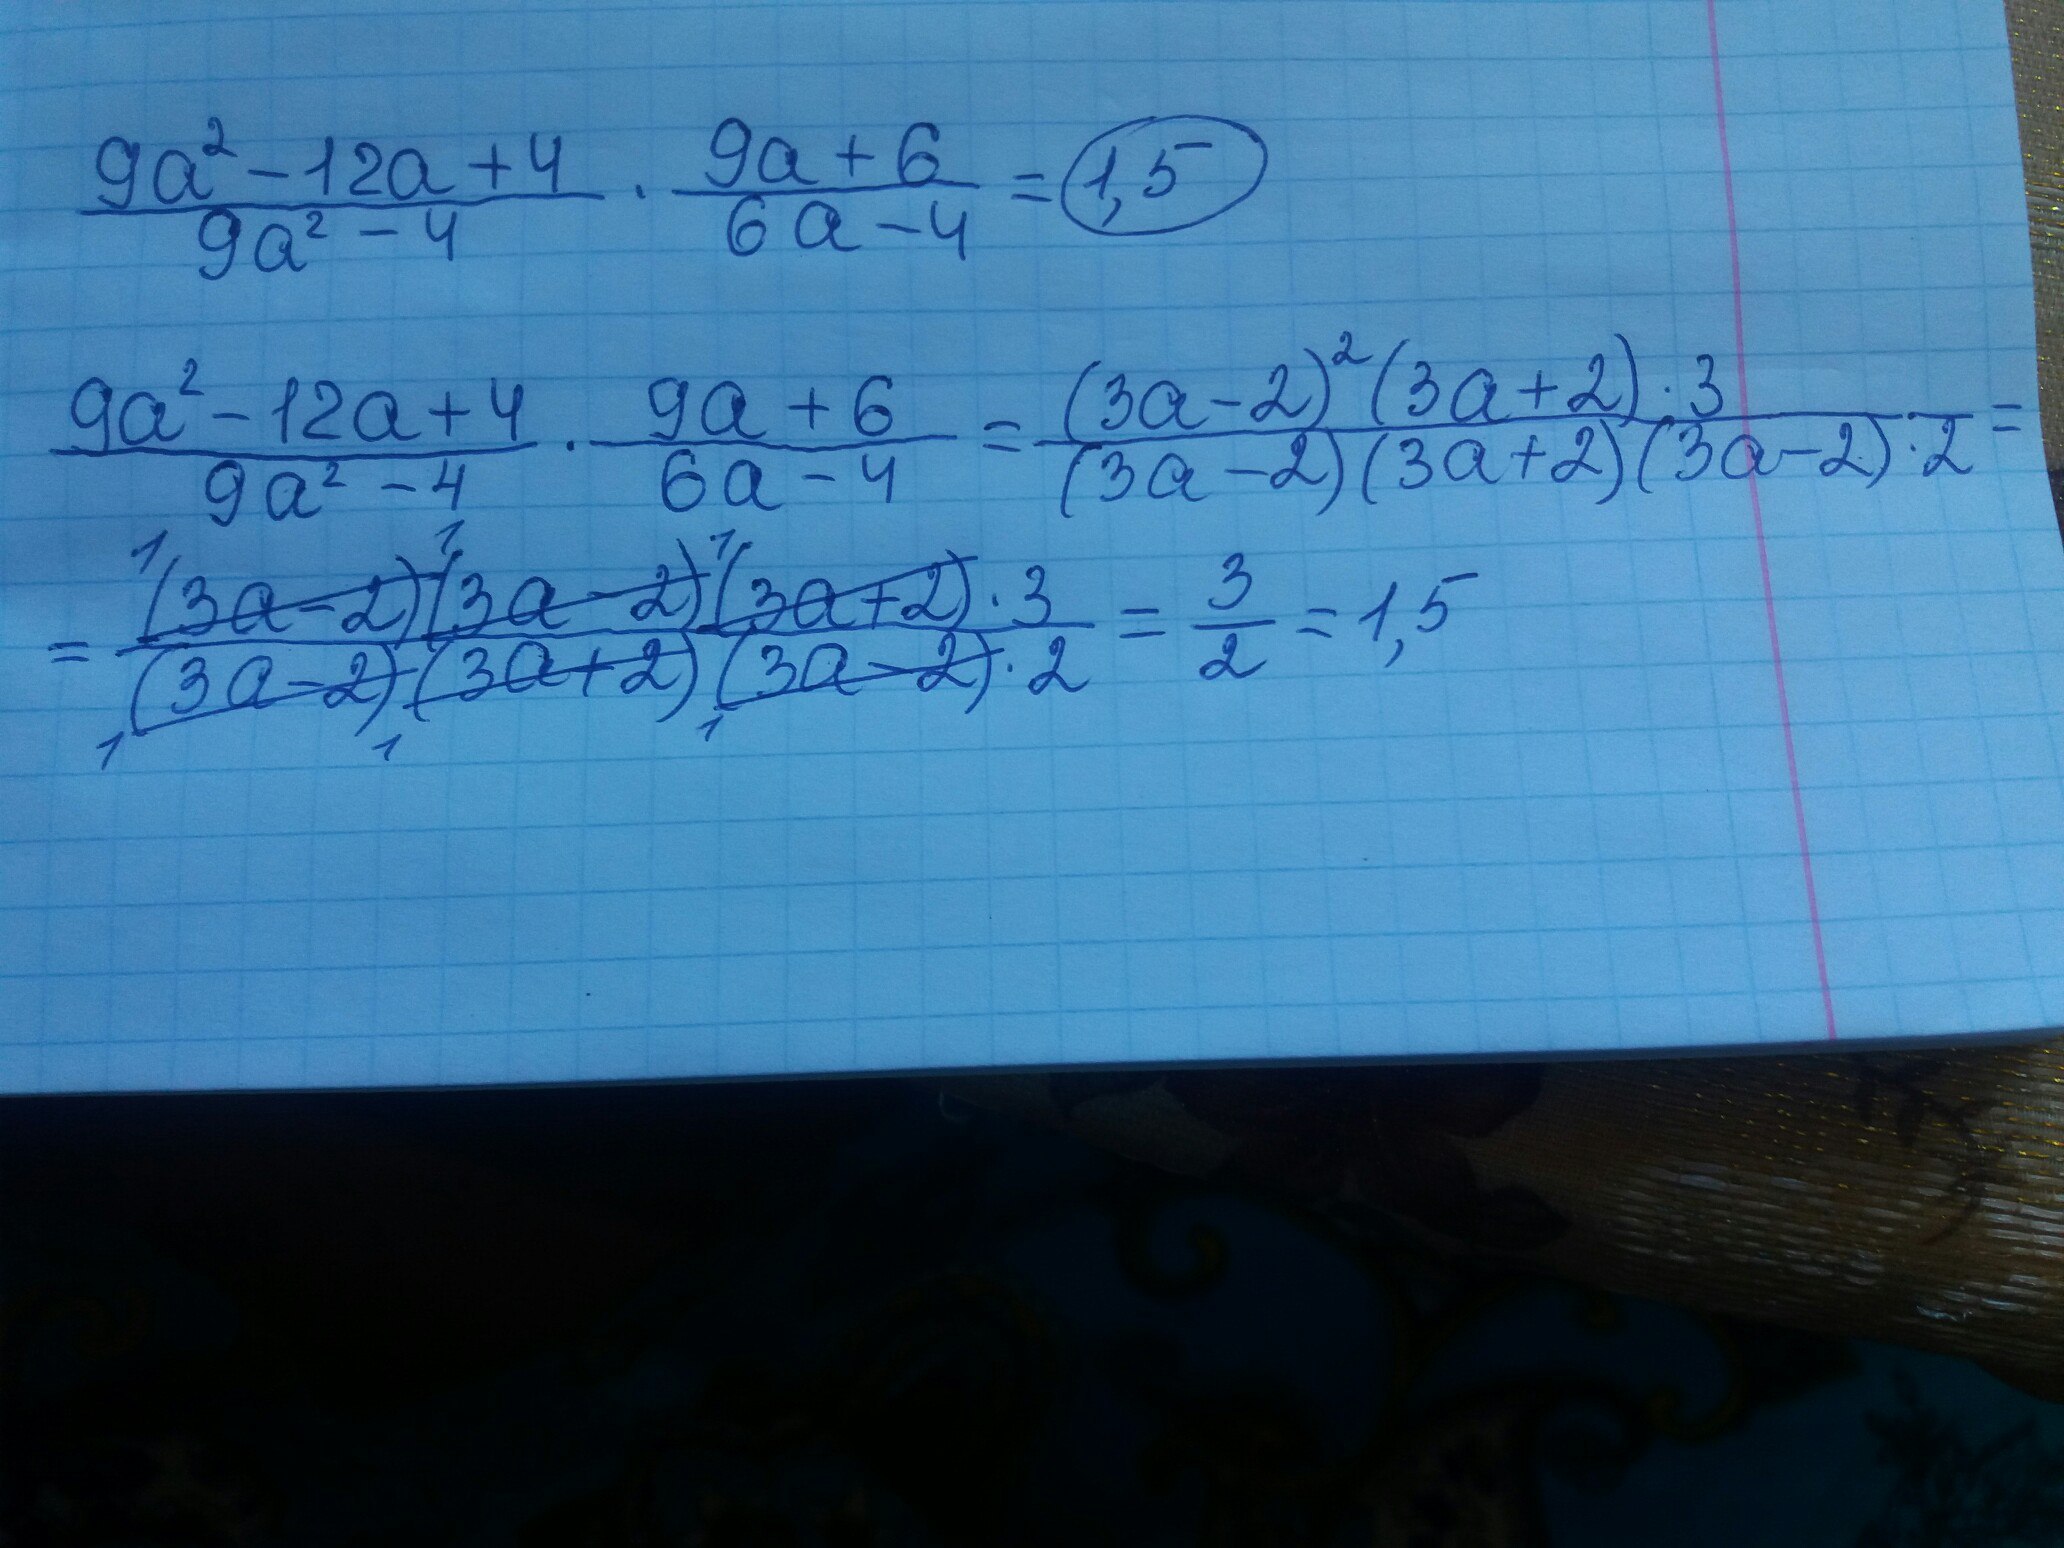 (9a² - 12a + 4)/(9a² - 4) · (9a + 6)/(6a - 4) = 1,5
(9a² - 12a + 4)/(9a² - 4) · (9a + 6)/(6a - 4) = ((3a - 2)²(3a + 2) · 3)/((3a - 2)(3a + 2)(3a - 2) · 2) =
1 1 1
= ((3a - 2)(3a - 2)(3a + 2) · 3)/((3a - 2)(3a + 2)(3a - 2) · 2) = 3/2 = 1,5
1 1 1